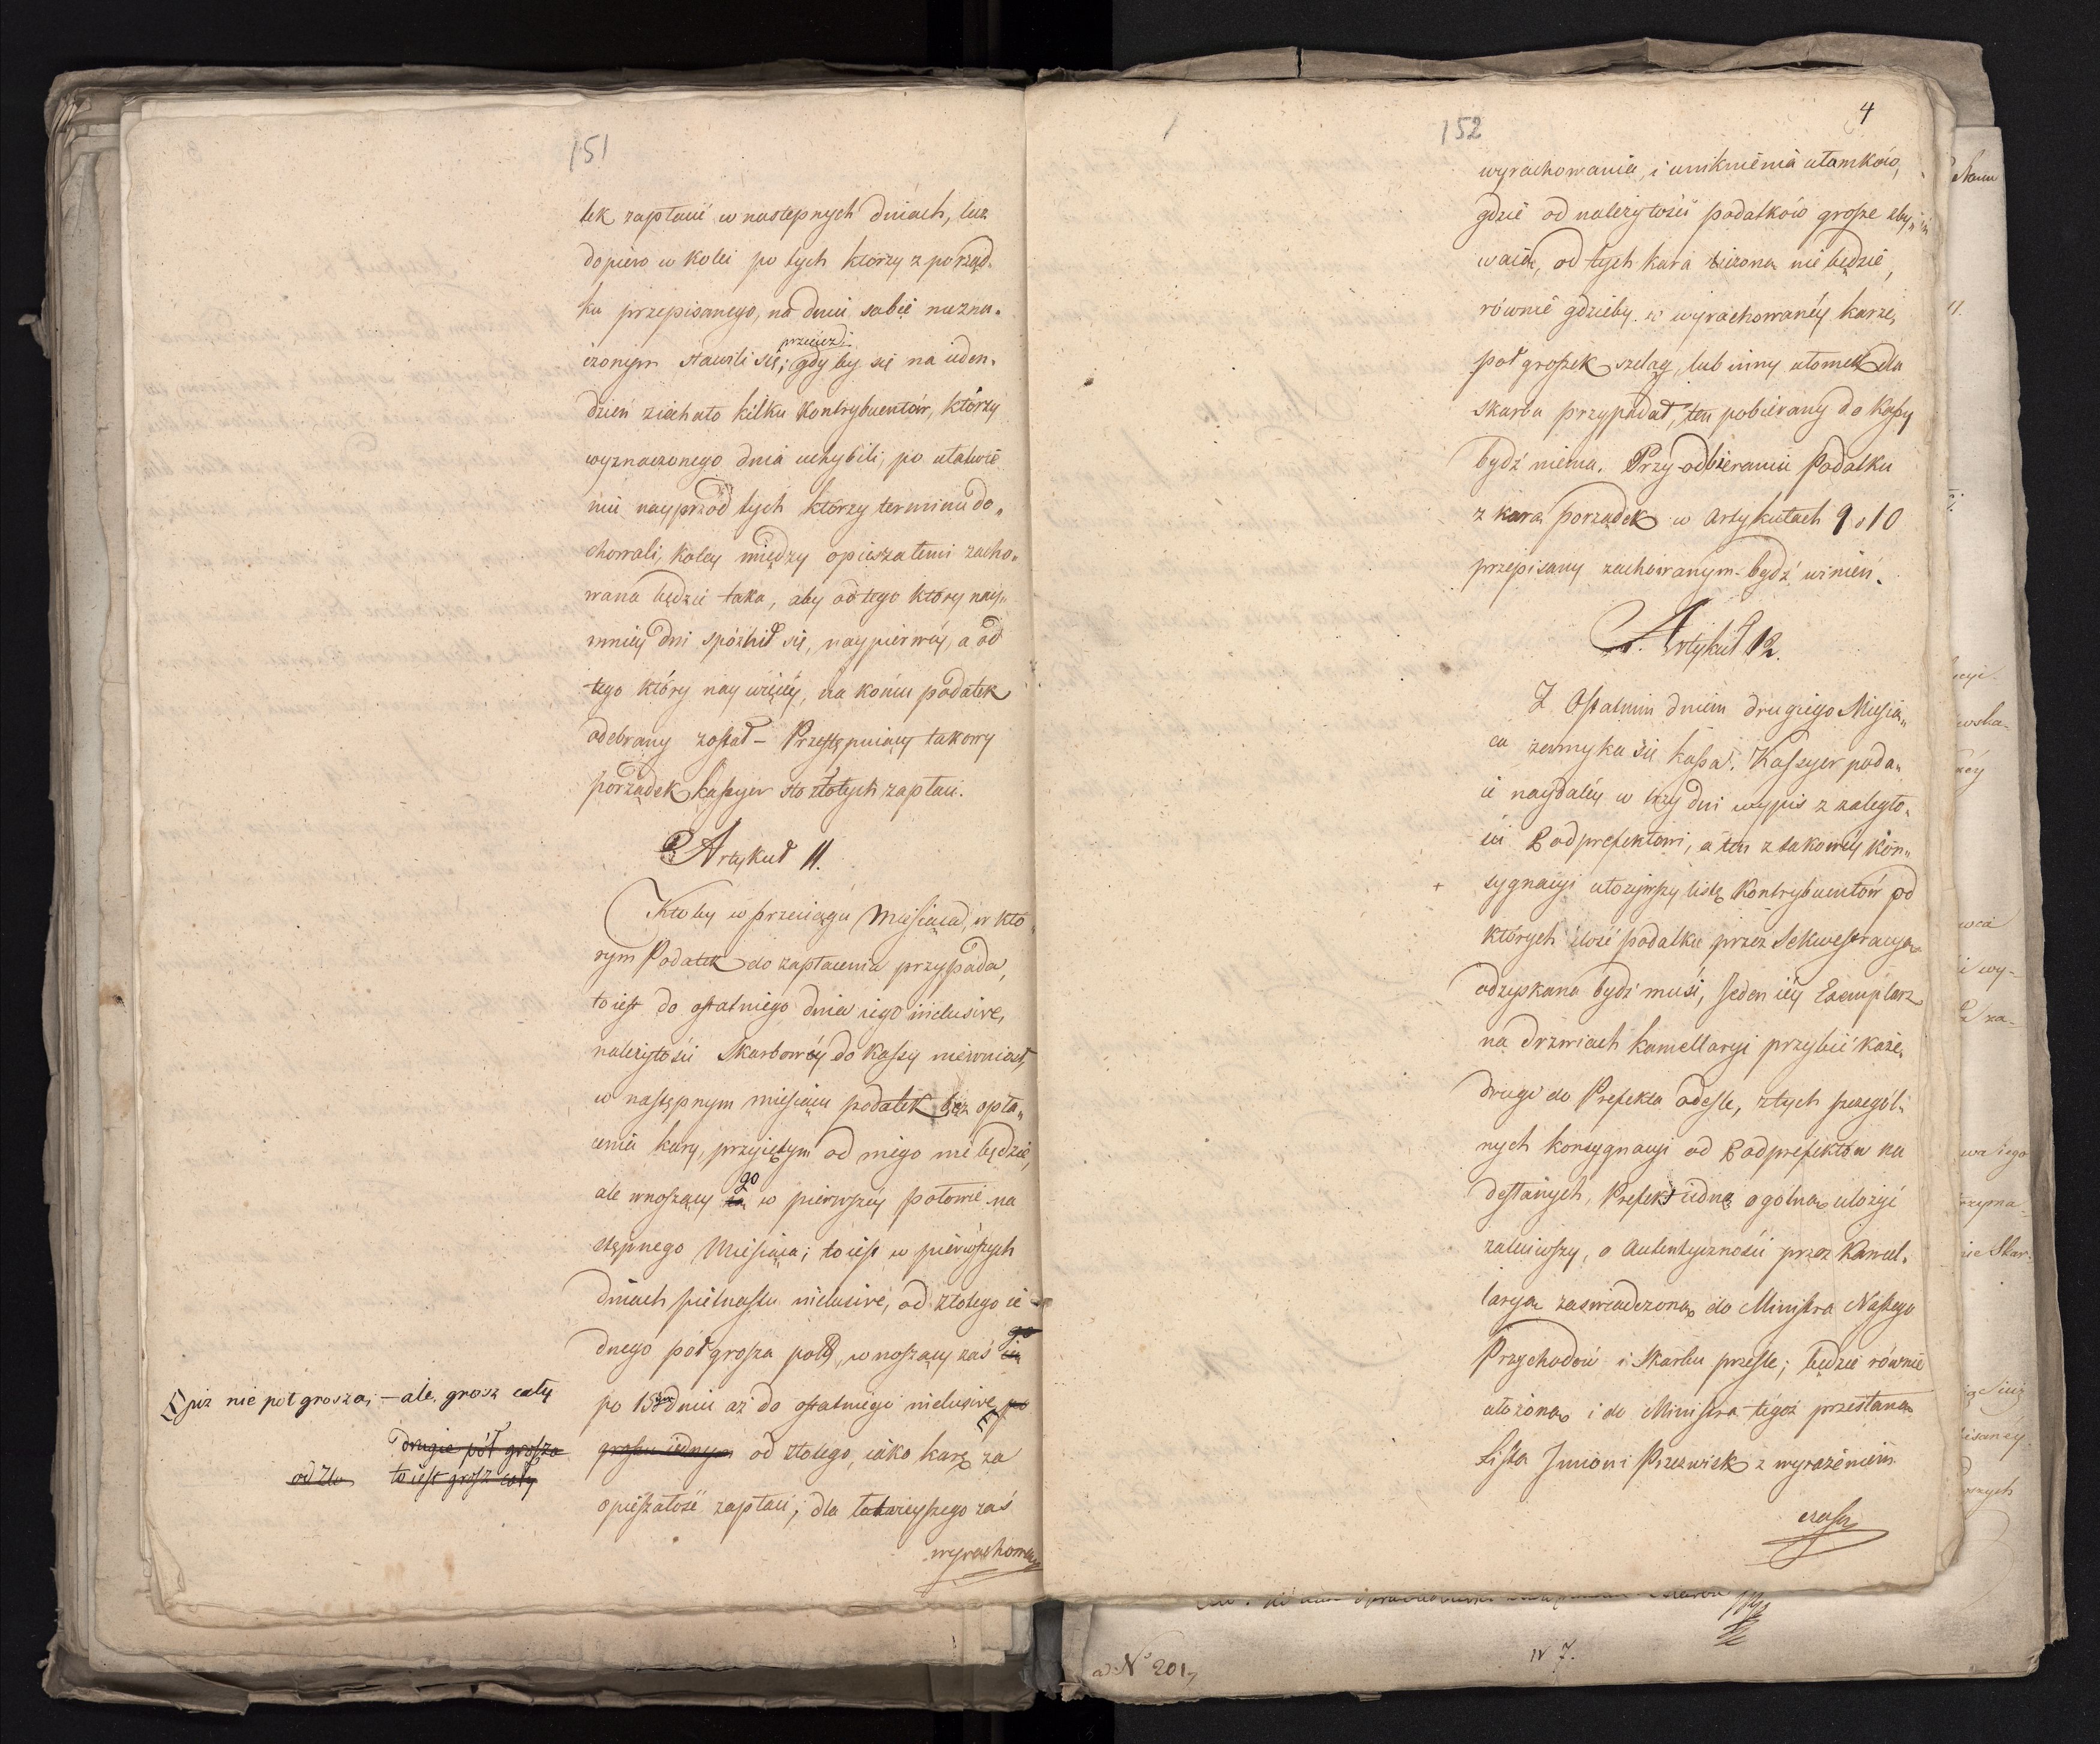 151
tek zapłacić w następnych dniach, lecz
dopiero w kolei po tych którzy z porząd„
ku przepisanego, na dniu sobie nazna„
przeciez
czonym stawili się; gdy by się na ieden„
dzień ziechało kilku Kontrybuentów, którzy
wyznaczonego dnia uchybili, po ułatwie
niu nayprzód tych którzy terminu do„
chowali, koley między opieszałemi zacho„
wana będzie taka, aby od tego który nay„
mniey dni spóźnił się, naypierwéy, a od
tego który naywięcéy, na końcu podatek
odebrany został – Przestępuiący takowy
porządek Kassyer sto złotych zapłaci.
Artykuł 11.
Ktoby w przeciągu Miesiąca, w któ
rym Podatek do zapłacenia przypada,
to iest do ostatniego dnia iego inclusive,
należytości Skarbowéy do Kassy niewniosł,
w następnym miesiącu podatek bez opła„
cenia kary, przyiętym od niego nie będzie,
go
ale wnoszący ią w pierwszéy połowie na
stępnego Miesiąca; to iest w pierwszych
dniach piętnastu inclusive, od złotego ie
go
dnego pół grosza pols, wnoszący zaś ią
po 15tym dniu aż do ostatniego inclusive po
już nie pół grosza, – ale grosz cały
drugie pół grosza
groszu iednym od złotego, iako karę za
od Zło to iest grosz cały
opieszałość zapłaci; dla łatwieyszego zaś
wyrachowania
4
152
wyrachowania, i uniknienia ułamków,
gdzie od należytości podatków grosze zby„
waią, od tych kara liczona nie będzie,
równie gdzieby w wyrachowanéy karze,
pół groszek szeląg, lub inny ułomek dla
skarbu przypadał, ten pobierany do Kassy
bydź niema. Przy odbieraniu Podatku
z karą porządek w Artykułach 9 i 10
przepisany zachowanym bydź winien.
Artykuł 12.
Z Ostatnim dniem drugiego Miesią„
ca zamyka się kassa. Kassyer poda„
ie naydaléy w trzy dni wypis z zaległo„
ści Podprefektowi, a ten z takowéy kon„
sygnacyi ułożywszy listę Kontrybuentów od
których ilość podatku przez Sekwestracyą
odzyskana bydź musi, Jeden iéy Exemplarz
na drzwiach kancellaryi przybić każe,
drugi do Prefekta odeśle, z tych szczegól„
nych konsygnacyi od Podprefektów na
desłanych, Prefekt iedną ogólną ułożyć
zaleciwszy, o Autentyczności przez Kancel„
laryą zaświadczoną do Ministra Naszego
Przychodów i Skarbu prześle; będzie równie
ułożona i do Ministra tegoż przesłana
Lista Imion i Przezwisk z wyrażeniem
czasu
a N° 201,
N 7.